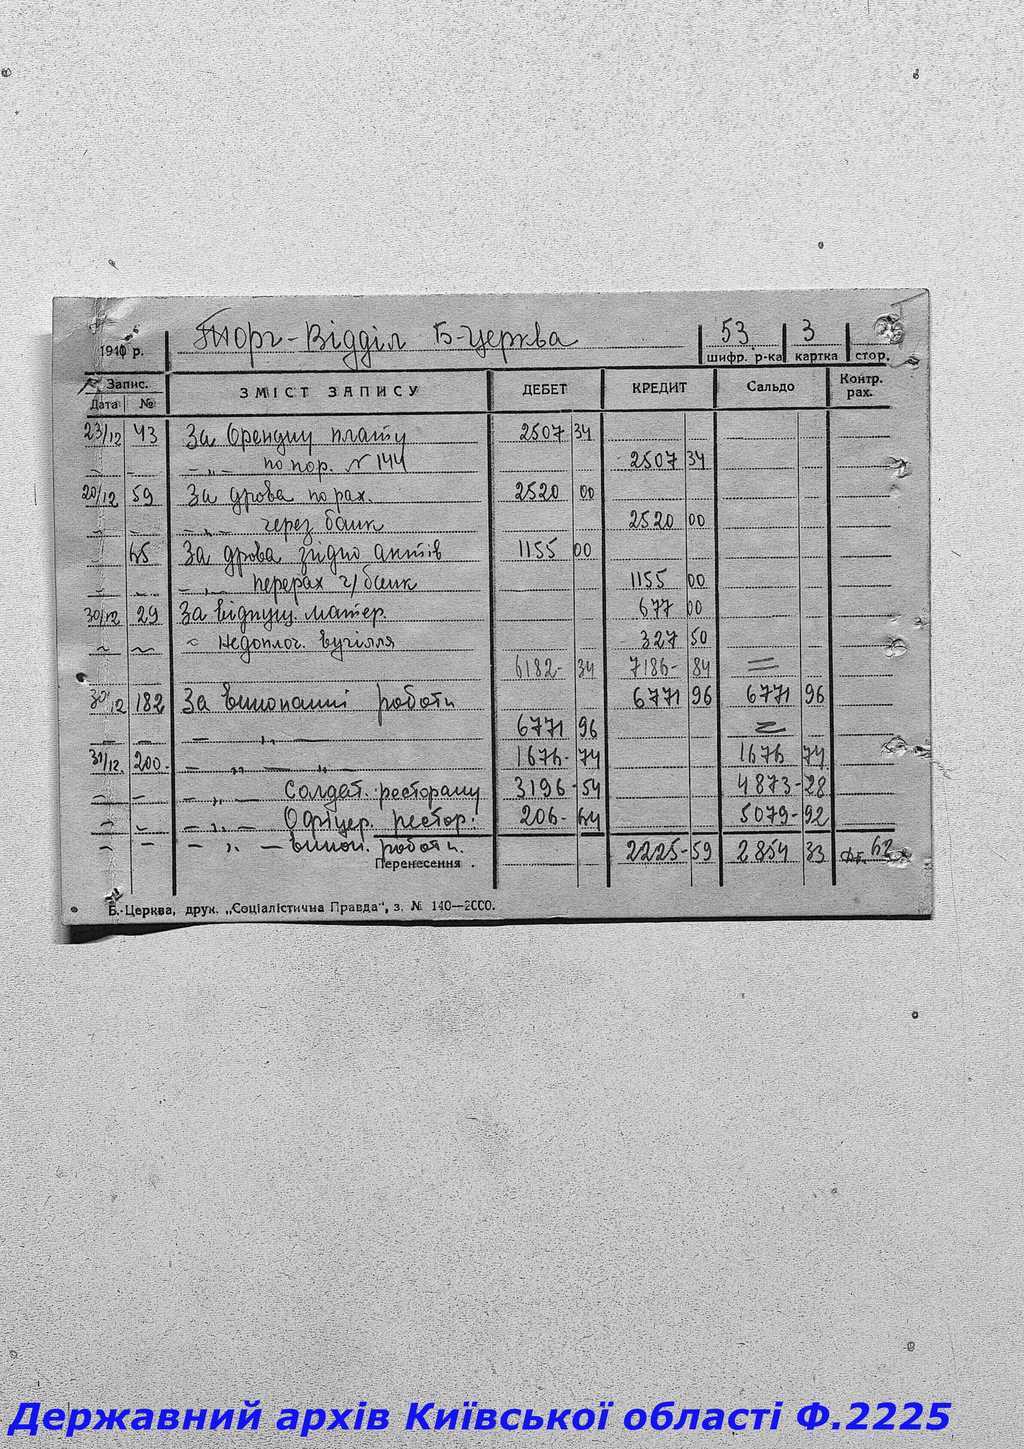 Торг-Відділ Б-Церква 53 3
1940 р. шифр. р-ка картка стор.
Запис. ЗМІСТ ЗАПИСУ ДЕБЕТ КРЕДИТ Сальдо Контр. рах.
Дата №
23/12 43 За орендну плату 2507 34
- - - „ - по пор. N 144 2507 34
20/12 59 За дрова по рах. 2520 00
- - - „ - через банк 2520 00
- 65 За дрова згідно актів 1155 00
- - - „ - перерах ч/банк 1155 00
30/12 29 За відпущ. матер. 677 00
~ ~ " недоплоч. вугілля 327 50
6182- 34 7186- 84 =
30/12 182 За виконанні роботи 6771 96 6771 96
- - - „ - 6771 96
31/12. 200- - „ - „ - 1676- 74 1676 74
- - - „ - Солдат. ресторану 3196-54 4873-28
- - - „ - Офіцер. рестор: 206-64 5079-92
- - - „ - викон. роботи. 2225-59 2854 33 62
Перенесення .
Б.-Церква, друк. „Соціалістична Правда", з. № 140—2000.
Державний архів Київської області Ф.2225